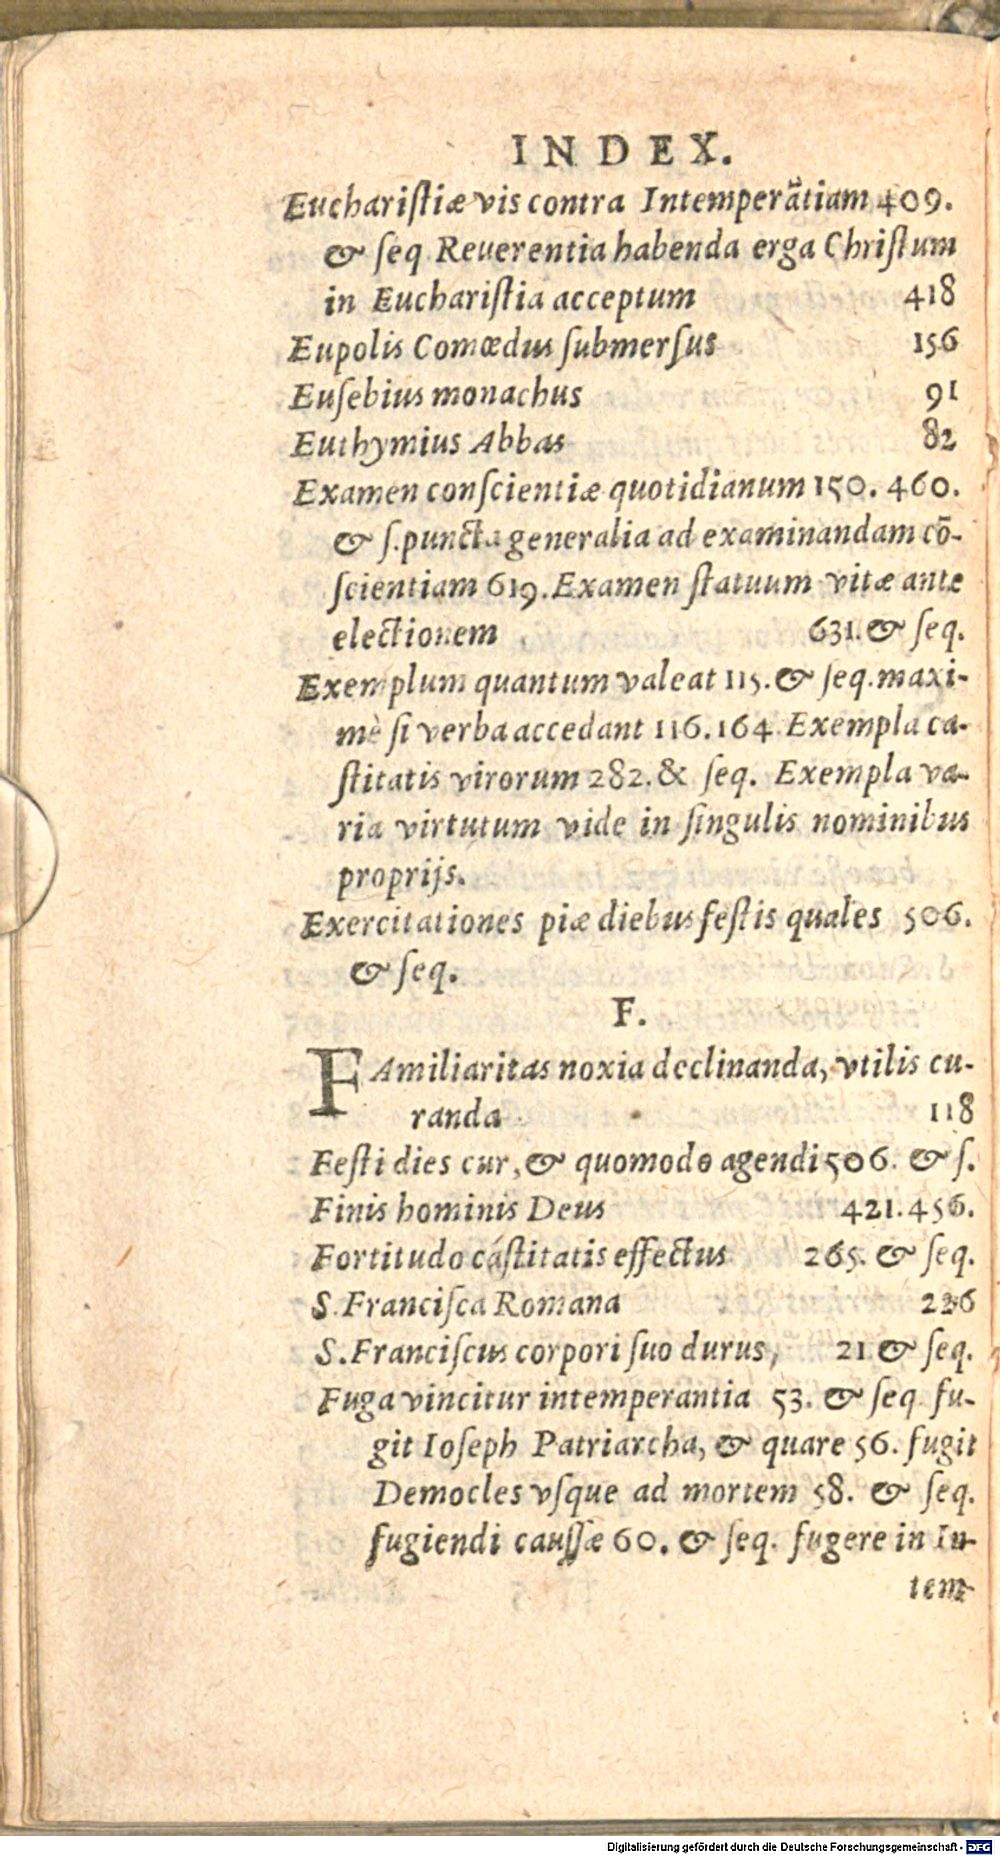 INDEX.
Euchariſtiæ vis contra Intemperātiam 409.
& ſeq Reuerentia habenda erga Chriſtum
in Euchariſtia acceptum 418
Eupolis Comœdus ſubmerſus 156
Euſebius monachus 91
Euthymius Abbas 82
Examen conſcientiæ quotidianum 150. 460.
& ſ. puncta generalia ad examinandam cō-
ſcientiam 619. Examen ſtatuum vitæ ante
electionem 631. & ſeq.
Exemplum quantum valeat 115. & ſeq. maxi-
mè ſi verba accedant 116. 164 Exempla ca-
ſtitatis virorum 282. & ſeq. Exempla va-
ria virtutum vide in ſingulis nominibus
proprijs.
Exercitationes piæ diebus feſtis quales 506.
& ſeq.
F.
FAmiliaritas noxia declinanda, vtilis cu-
randa 118
Feſti dies cur, & quomodo agendi 506. & ſ.
Finis hominis Deus 421. 456.
Fortitudo caſtitatis effectus 265. & ſeq.
S. Franciſca Romana 226
S. Franciſcus corpori ſuo durus, 21 & ſeq.
Fuga vincitur intemperantia 53. & ſeq fu-
git Ioſeph Patriarcha, & quare 56. fugit
Democles vſque ad mortem 58. & ſeq.
fugiendi cauſſæ 60. & ſeq. fugere in In-
tem-
Digitalisierung gefördert durch die Deutsche Forschungsgemeinschaft - DFG